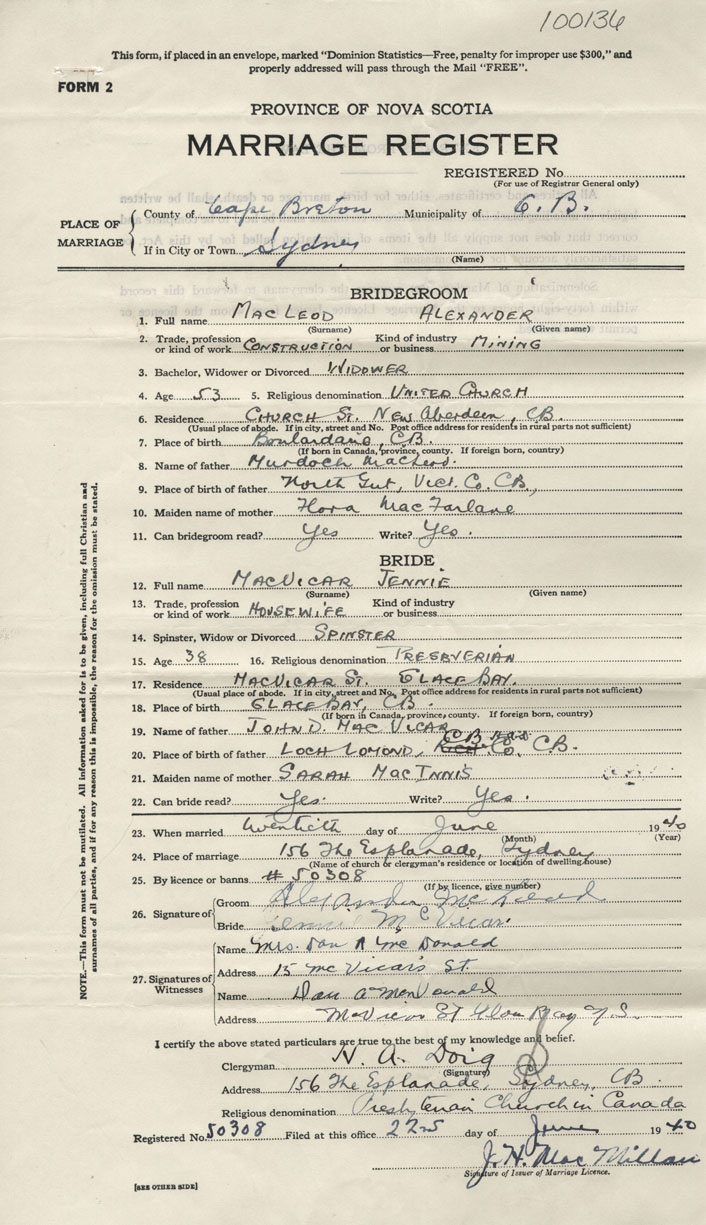 100136
This form, if placed in an envelope, marked "Dominion Statistics—Free, penalty for improper use $300," and
properly addressed will pass through the Mail "FREE".
FORM 2
PROVINCE OF NOVA SCOTIA
MARRIAGE REGISTER
REGISTERED No.
(For use of Registrar General only)
PLACE OF MARRIAGE
County of Cape Breton Municipality of C. B.
If in City or Town Sydney
(Name)
BRIDEGROOM
1. Full name MacLeod Alexander
(Surname) (Given name)
2. Trade, profession or kind of work Construction Kind of industry or business Mining
3. Bachelor, Widower or Divorced Widower
4. Age 53 5. Religious denomination United Church
6. Residence Church St. New Aberdeen, CB.
(Usual place of abode. If in city, street and No. Post office address for residents in rural parts not sufficient)
7. Place of birth Boulardarie, CB.
(If born in Canada, province, county. If foreign born, country)
8. Name of father Murdoch MacLeod.
9. Place of birth of father North Gut, Vict. Co. CB.,
10. Maiden name of mother Flora MacFarlane
11. Can bridegroom read? Yes Write? Yes.
BRIDE
12. Full name MacVicar Jennie
(Surname) (Given name)
13. Trade, profession or kind of work Housewife Kind of industry or business
14. Spinster, Widow or Divorced Spinster
15. Age 38 16. Religious denomination Presbyerian
17. Residence MacVicar St. Glace Bay.
(Usual place of abode. If in city, street and No. Post office address for residents in rural parts not sufficient)
18. Place of birth Glace Bay, CB.
(If born in Canada, province, county. If foreign born, country)
19. Name of father John D. MacVicar
20. Place of birth of father Loch Lomond, CB Co. CB.
21. Maiden name of mother Sarah MacInnis
22. Can bride read? Yes. Write? Yes.
23. When married twentieth day of June 1940
(Month) (Year)
24. Place of marriage 156 The Esplanade, Sydney
(Name of church or clergyman's residence or location of dwelling house)
25. By licence or banns # 50308
(If by licence, give number)
26. Signature of
Groom Alexander McLeod
Bride Jennie McVicar.
27. Signatures of Witnesses
Name Mrs. Dan A McDonald
Address 15 McVicars St.
Name Dan A McDonald
Address McVicars St Glace Bay N.S.
I certify the above stated particulars are true to the best of my knowledge and belief.
Clergyman H. A. Doig
(Signature)
Address 156 The Esplanade, Sydney, CB
Religious denomination Presbyterian Church in Canada
Registered No. 50308 Filed at this office 22 day of June 1940
J. H. MacMillan
Signature of Issuer of Marriage Licence.
[SEE OTHER SIDE]
NOTE.—This form must not be mutilated. All information asked for is to be given, including full Christian and
surnames of all parties, and if for any reason this is impossible, the reason for the omission must be stated.